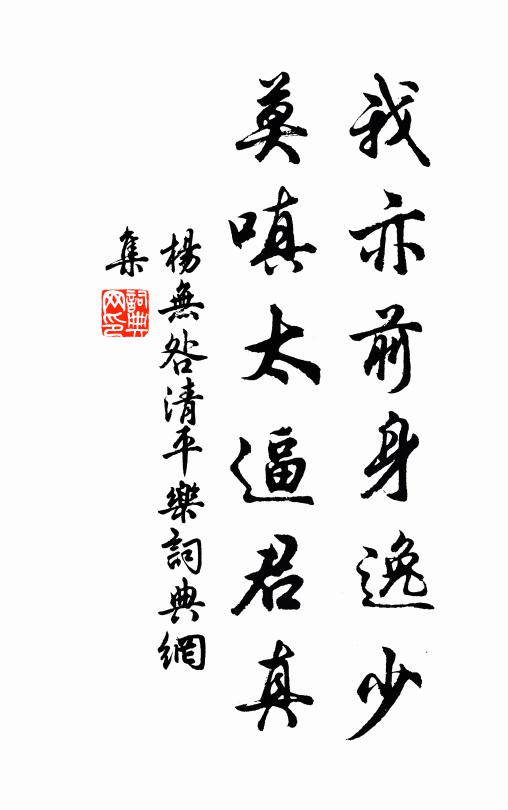 我亦前身逸少
莫嗔太逼君真
楊無咎清平樂詞典網
集
詞典网印